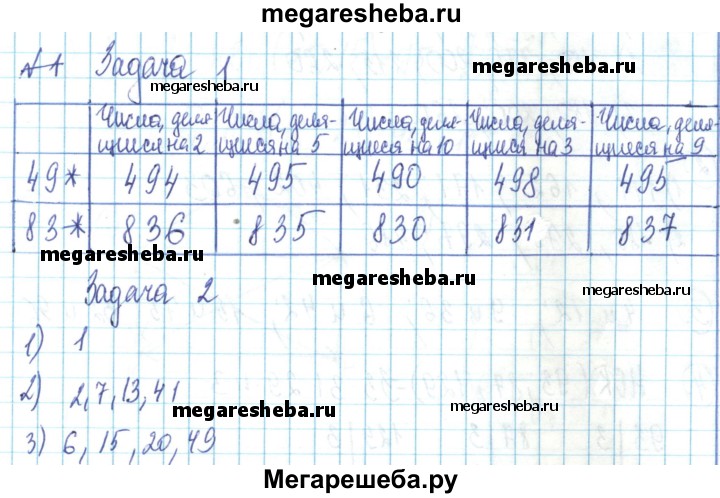 megaresheba.ru
№1 Задача 1
megaresheba.ru
megaresheba.ru
Числа, деля- Числа, деля- Числа, деля- Числа, деля- Числа, деля-
щиеся на 2 щиеся на 5 щиеся на 10 щиеся на 3 щиеся на 9
megaresheba.ru
49* 494 495 490 498 495
83* 836 835 830 831 837
megaresheba.ru
megaresheba.ru
Задача 2
megaresheba.ru
1) 1
2) 2,7,13,41
megaresheba.ru
megaresheba.ru
3) 6, 15, 20, 49
Мегарешеба.ру